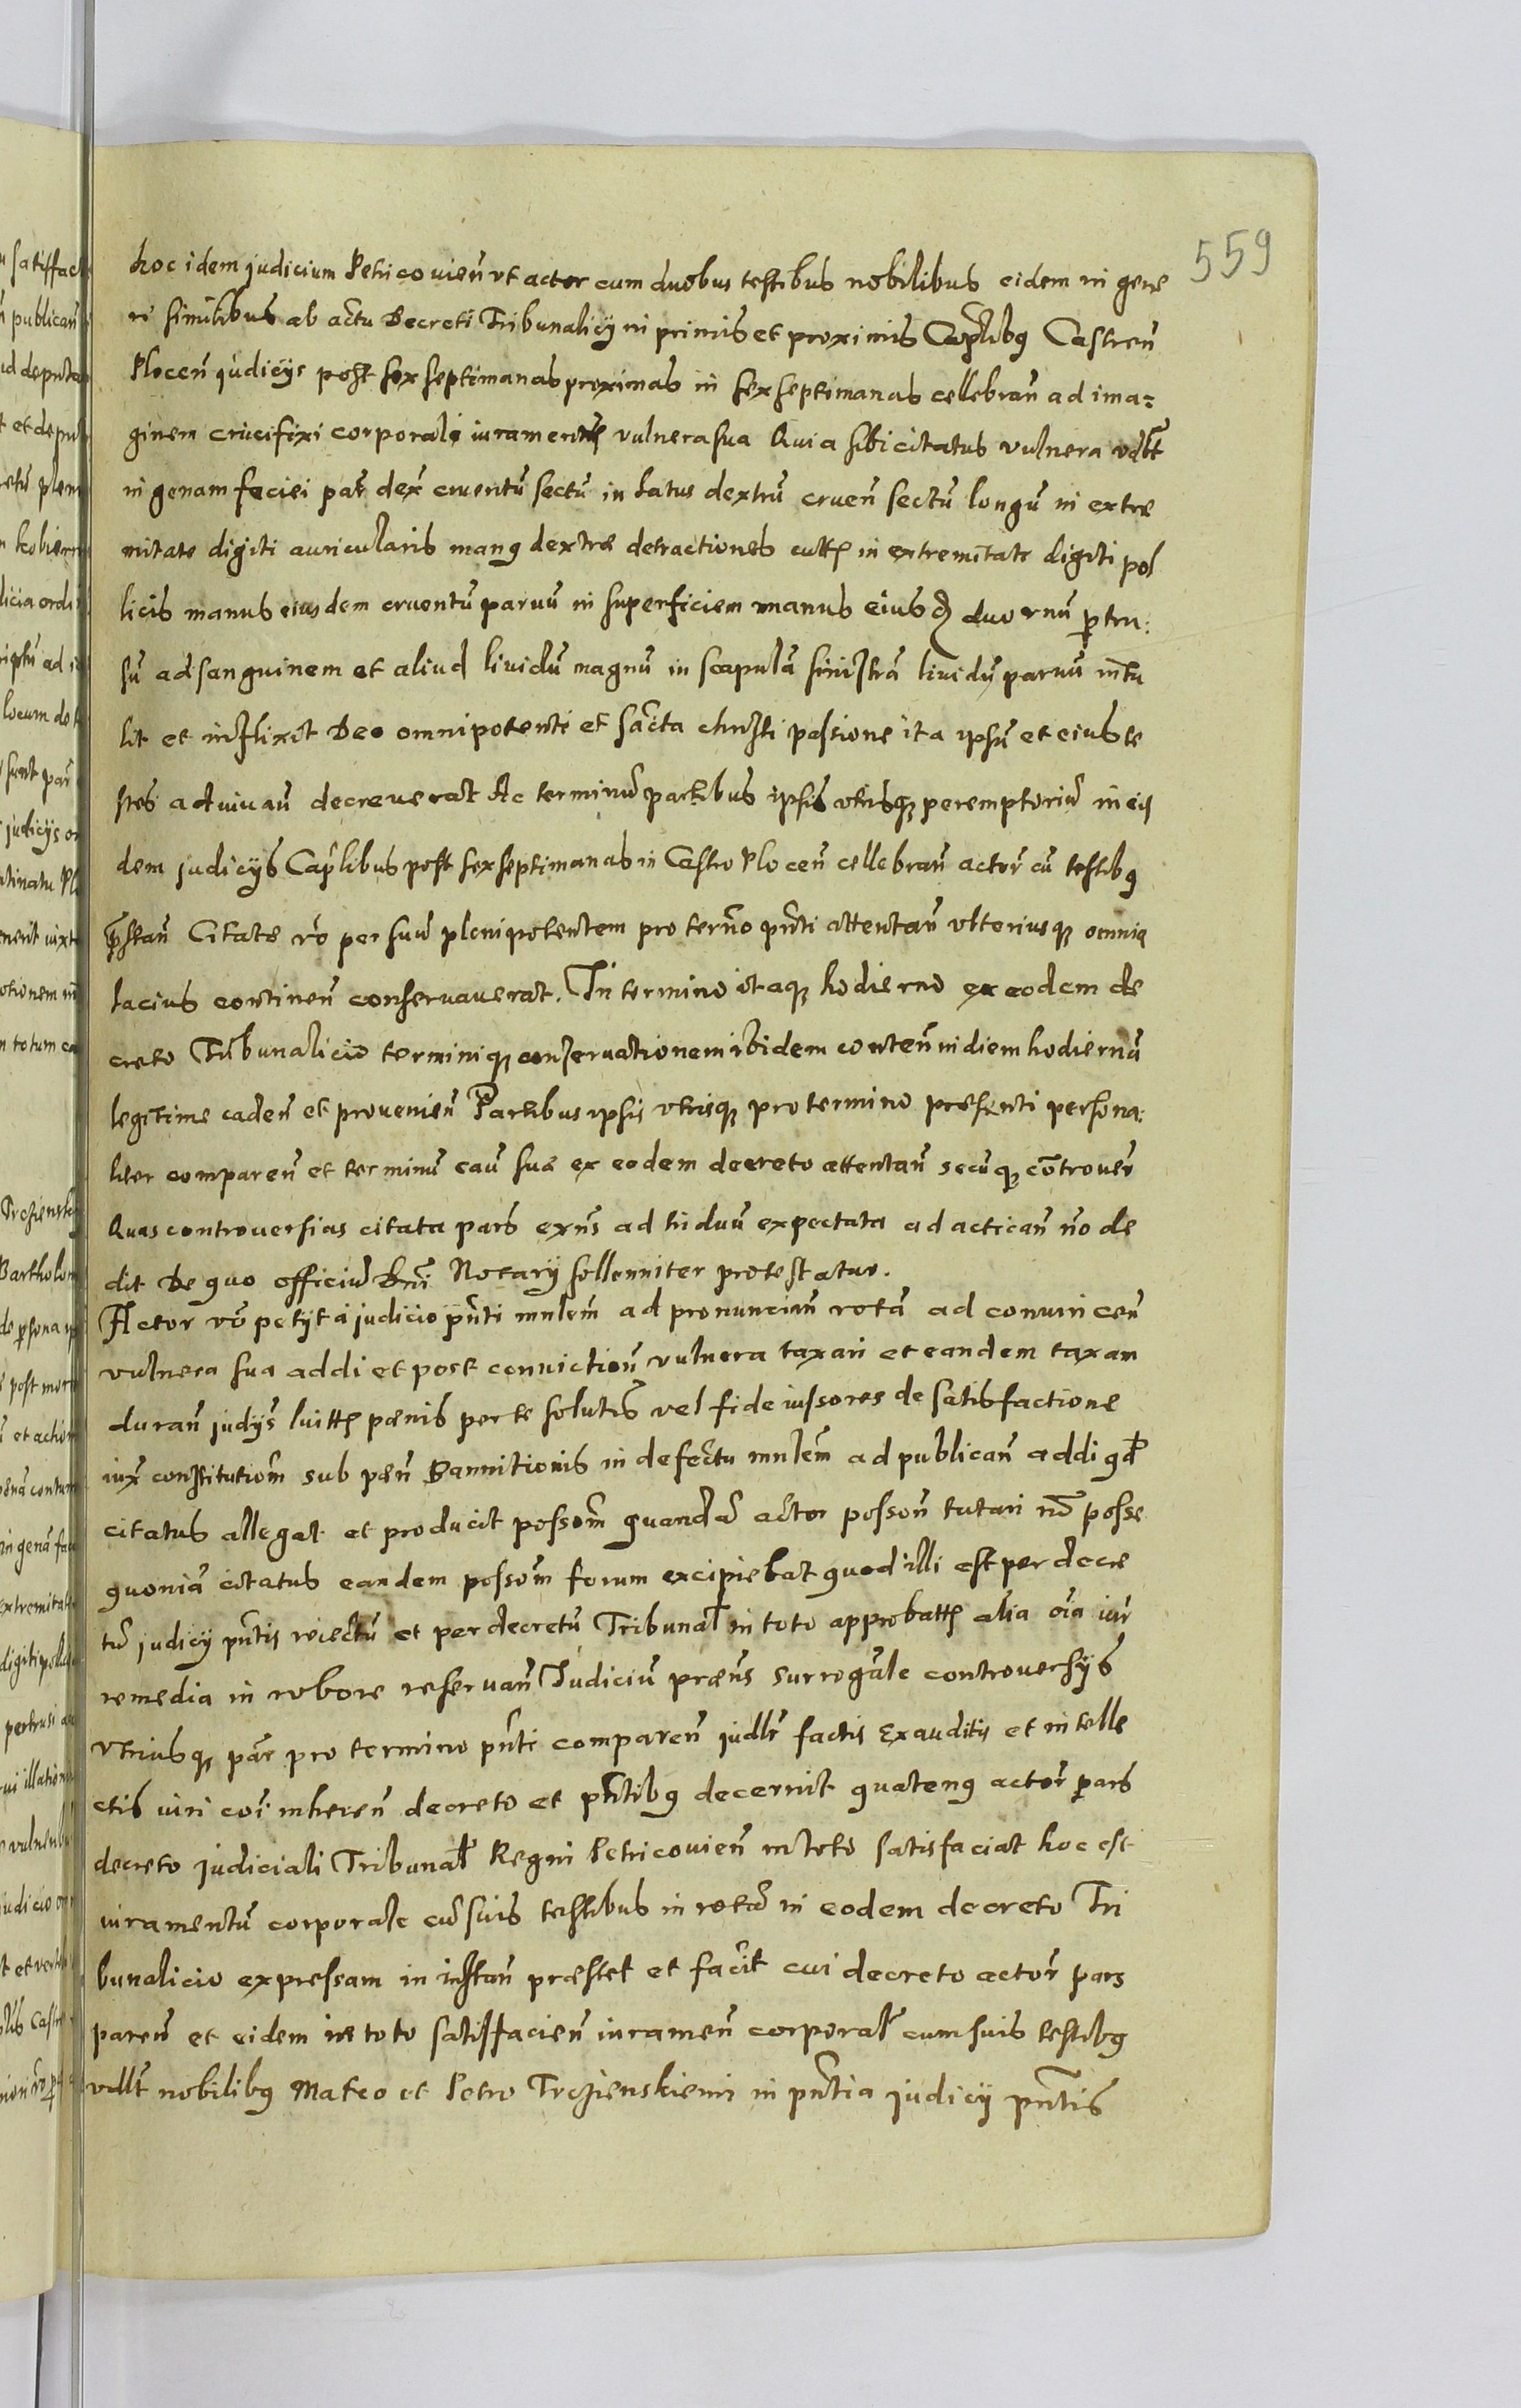 559
hoc idem judicium Petricovien̄ vt actor cum duobus testibus nobilibus eidem in gene
re similibus ab actu Decreti Tribunalicij in primis et proximis Capłibus Castren̄
Plocen̄ judicijs post sex septimanas proximas in sex septimanas cellebran̄ ad ima=
ginem crucifixi corporale iuramentum vulnera sua Quia sibi citatus vulnera vdłt
in genam faciei par̄ dex̄ cruentū sectū in latus dextrū cruen̄ sectū longū in extre
mitate digiti auricularis manus dextræ detractiones cuttis in extremitate digiti pol
licis manus eiusdem cruentū paruū in superficiem manus eiusd duornū ptru:
sū ad sanguinem et aliud liuidū magnū in scapulā sinistrā liuidū paruū intu
lit et inflixit Deo omnipotenti et sācta christi passione ita ipsū et eius te
stes adiuuan̄ decreuerat Ac terminū partibus ipsis vtrisque peremptoriū in eis
dem judicijs Capłibus post sex septimanas in Castro Plocen̄ cellebran̄ actor̄ cū testibus
pstan̄ Citatæ vō per suū plenipotentem pro terno pn̄ti attentan̄ vlteriusque omnia
lacius continen̄ conseruauerat. In termino itaque hodierno ex eodem de
creto Tribunalicio terminique conseruationem ibidem conten̄ in diem hodiernū
legitime caden̄ et prouenien̄ Partibus ipsis vtrisque pro termino præsenti persona:
liter comparen̄ et terminū cau suæ ex eodem decreto attentan̄ secūque cōtrouer̄
Quas controuersias citata pars exn̄s ad triduū expectata ad actican̄ nō de
dit De quo officiū Dn̄i Notarij sollenniter protestatur.
Actor vō petijt a judicio pn̄ti mnlem̄ ad pronuncian̄ rotā ad conuincen̄
vulnera sua addi et post conuiction̄ vulnera taxari et eandem taxam
duran̄ judijs luittis pænis per te solutis vel fideiussores de satisfactione
iux̄ constitutiom̄ sub pæn̄ Bannitionis in defectu mnlem̄ ad publican̄ addi qd
citatus allegat et producit possom̄ quandā actor posson̄ tutari nō posse
quoniā citatus eandem possom̄ forum excipiebat quod illi est per decre
tū judicij pn̄tis reiectū et per decretū Tribunal in toto approbattis alia oīa iur̄
remedia in robore reseruan̄ Judicium præns surrogāle controuersijs
vtriusque par̄ pro termino pn̄ti comparen̄ judłr factis exauditis et intelle
ctis viri coī inheren̄ decreto et pn̄tibus decernit quatenus actor̄ pars
decreto judiciali Tribunal Regni Petricouien̄ in toto satisfaciat hoc est
iuramentū corporale cū suis testibus in rotā in eodem decreto Tri
bunalicio expressam in instan̄ præstet et facit cui decreto actor̄ pars
paren̄ et eidem in toto satisfacien̄ iuramen̄ corporal cum suis testibus
vdłt nobilibus Mateo et Petro Trczienskiemi in pn̄tia judicij pn̄tis